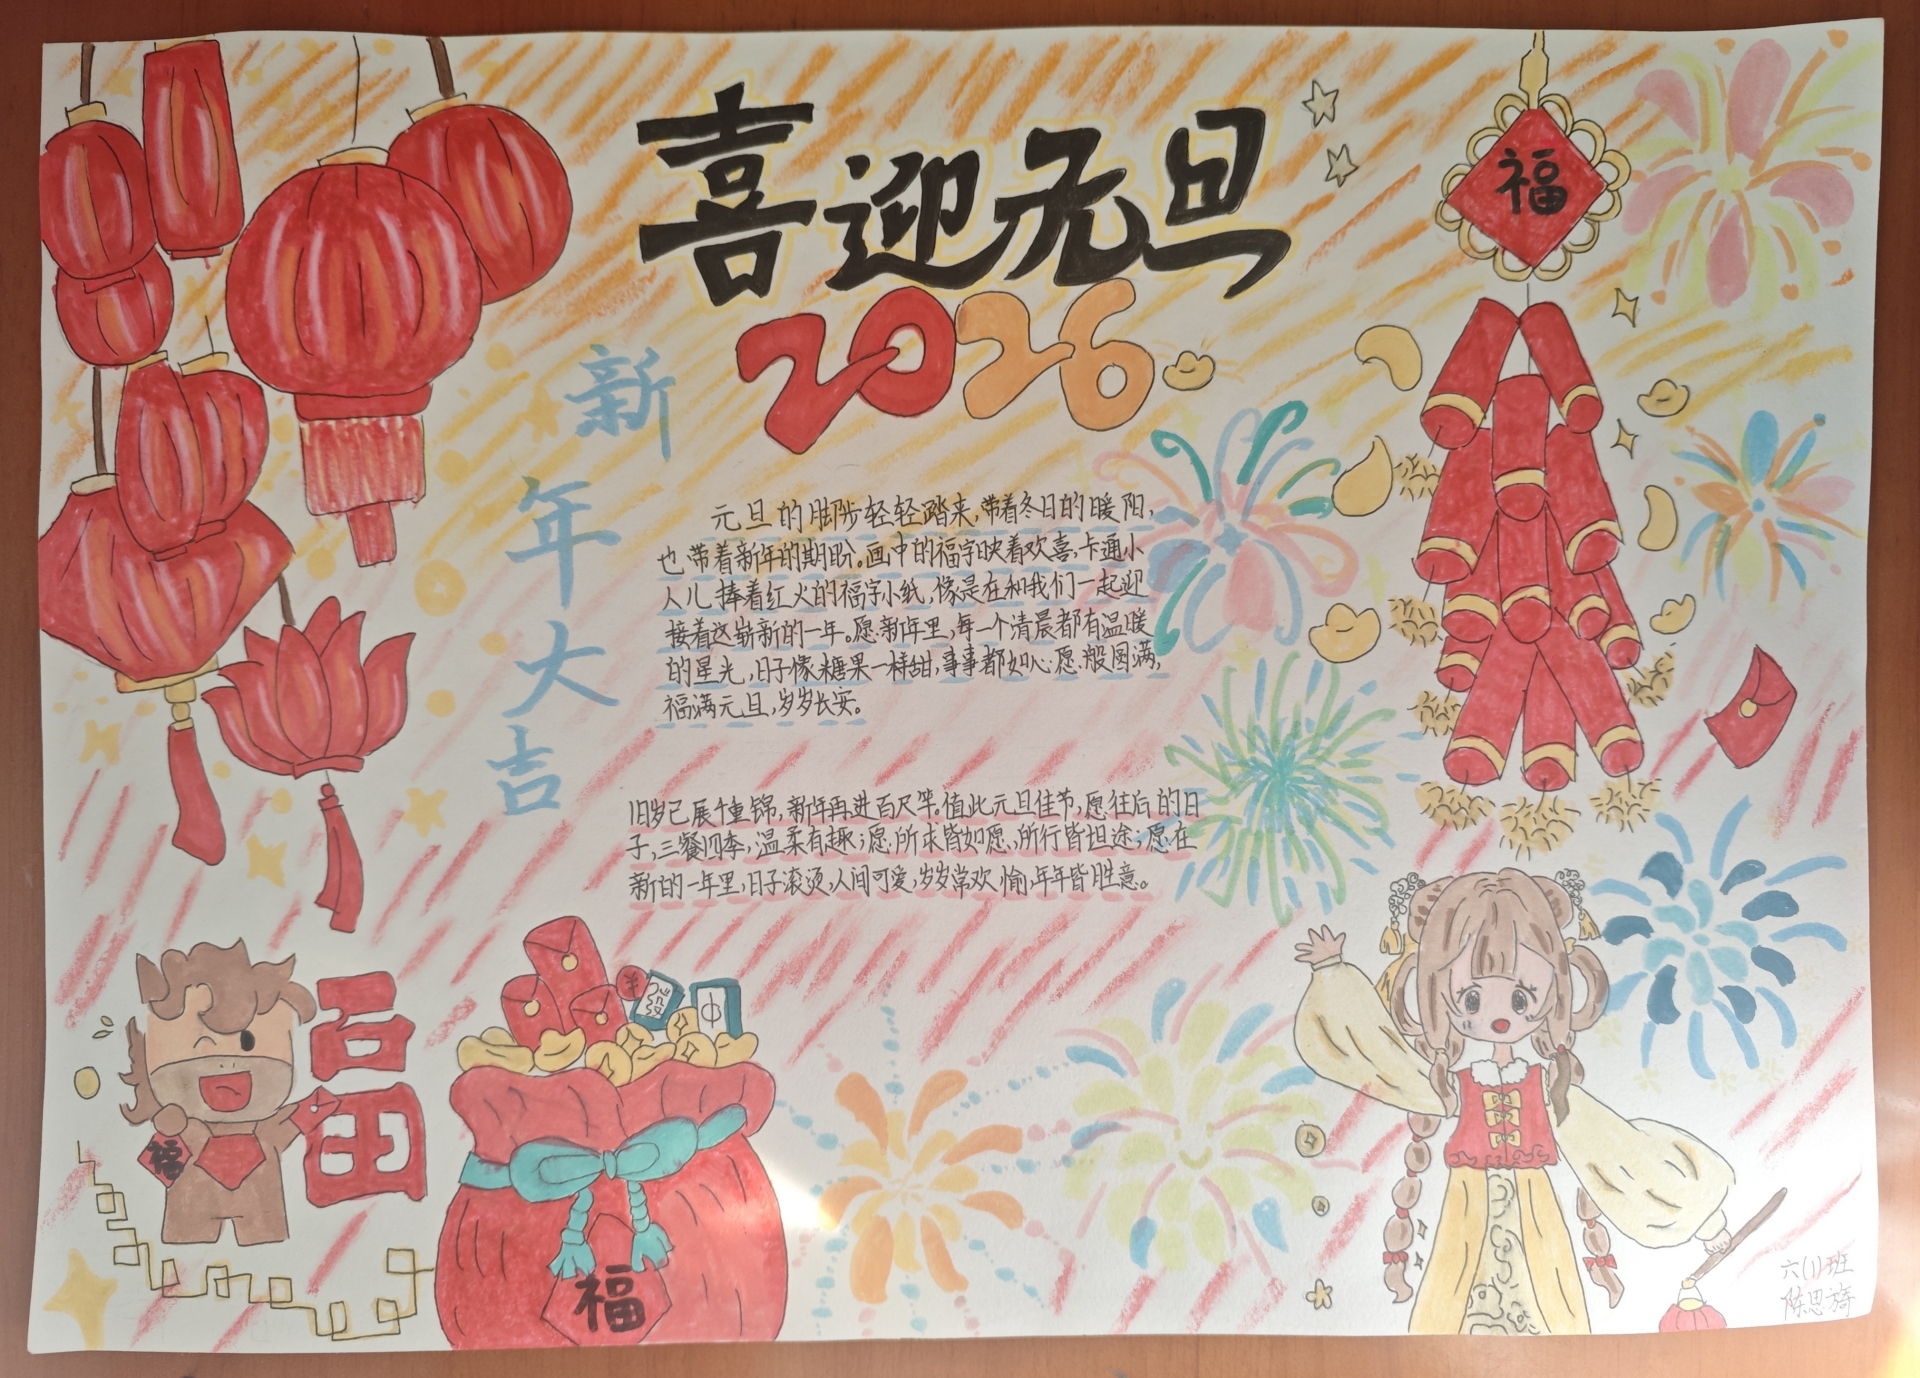 喜迎元旦
2026
新年大吉
福
元旦的脚步轻轻踏来,带着冬日的暖阳,
也带着新年的期盼。画中的福字映着欢喜,卡通小
人儿捧着红火的福字小纸,像是在和我们一起迎
接着这崭新的一年。愿新年里,每一个清晨都有温暖
的星光,日子像糖果一样甜,事事都如心愿般圆满,
福满元旦,岁岁长安。
旧岁已展千重锦,新年再进百尺竿。值此元旦佳节,愿往后的日
子,三餐四季,温柔有趣;愿所求皆如愿,所行皆坦途;愿在
新的一年里,日子滚烫,人间可爱,岁岁常欢愉,年年皆胜意。
福
福
¥
發
中
福
六(1)班
陈思旖